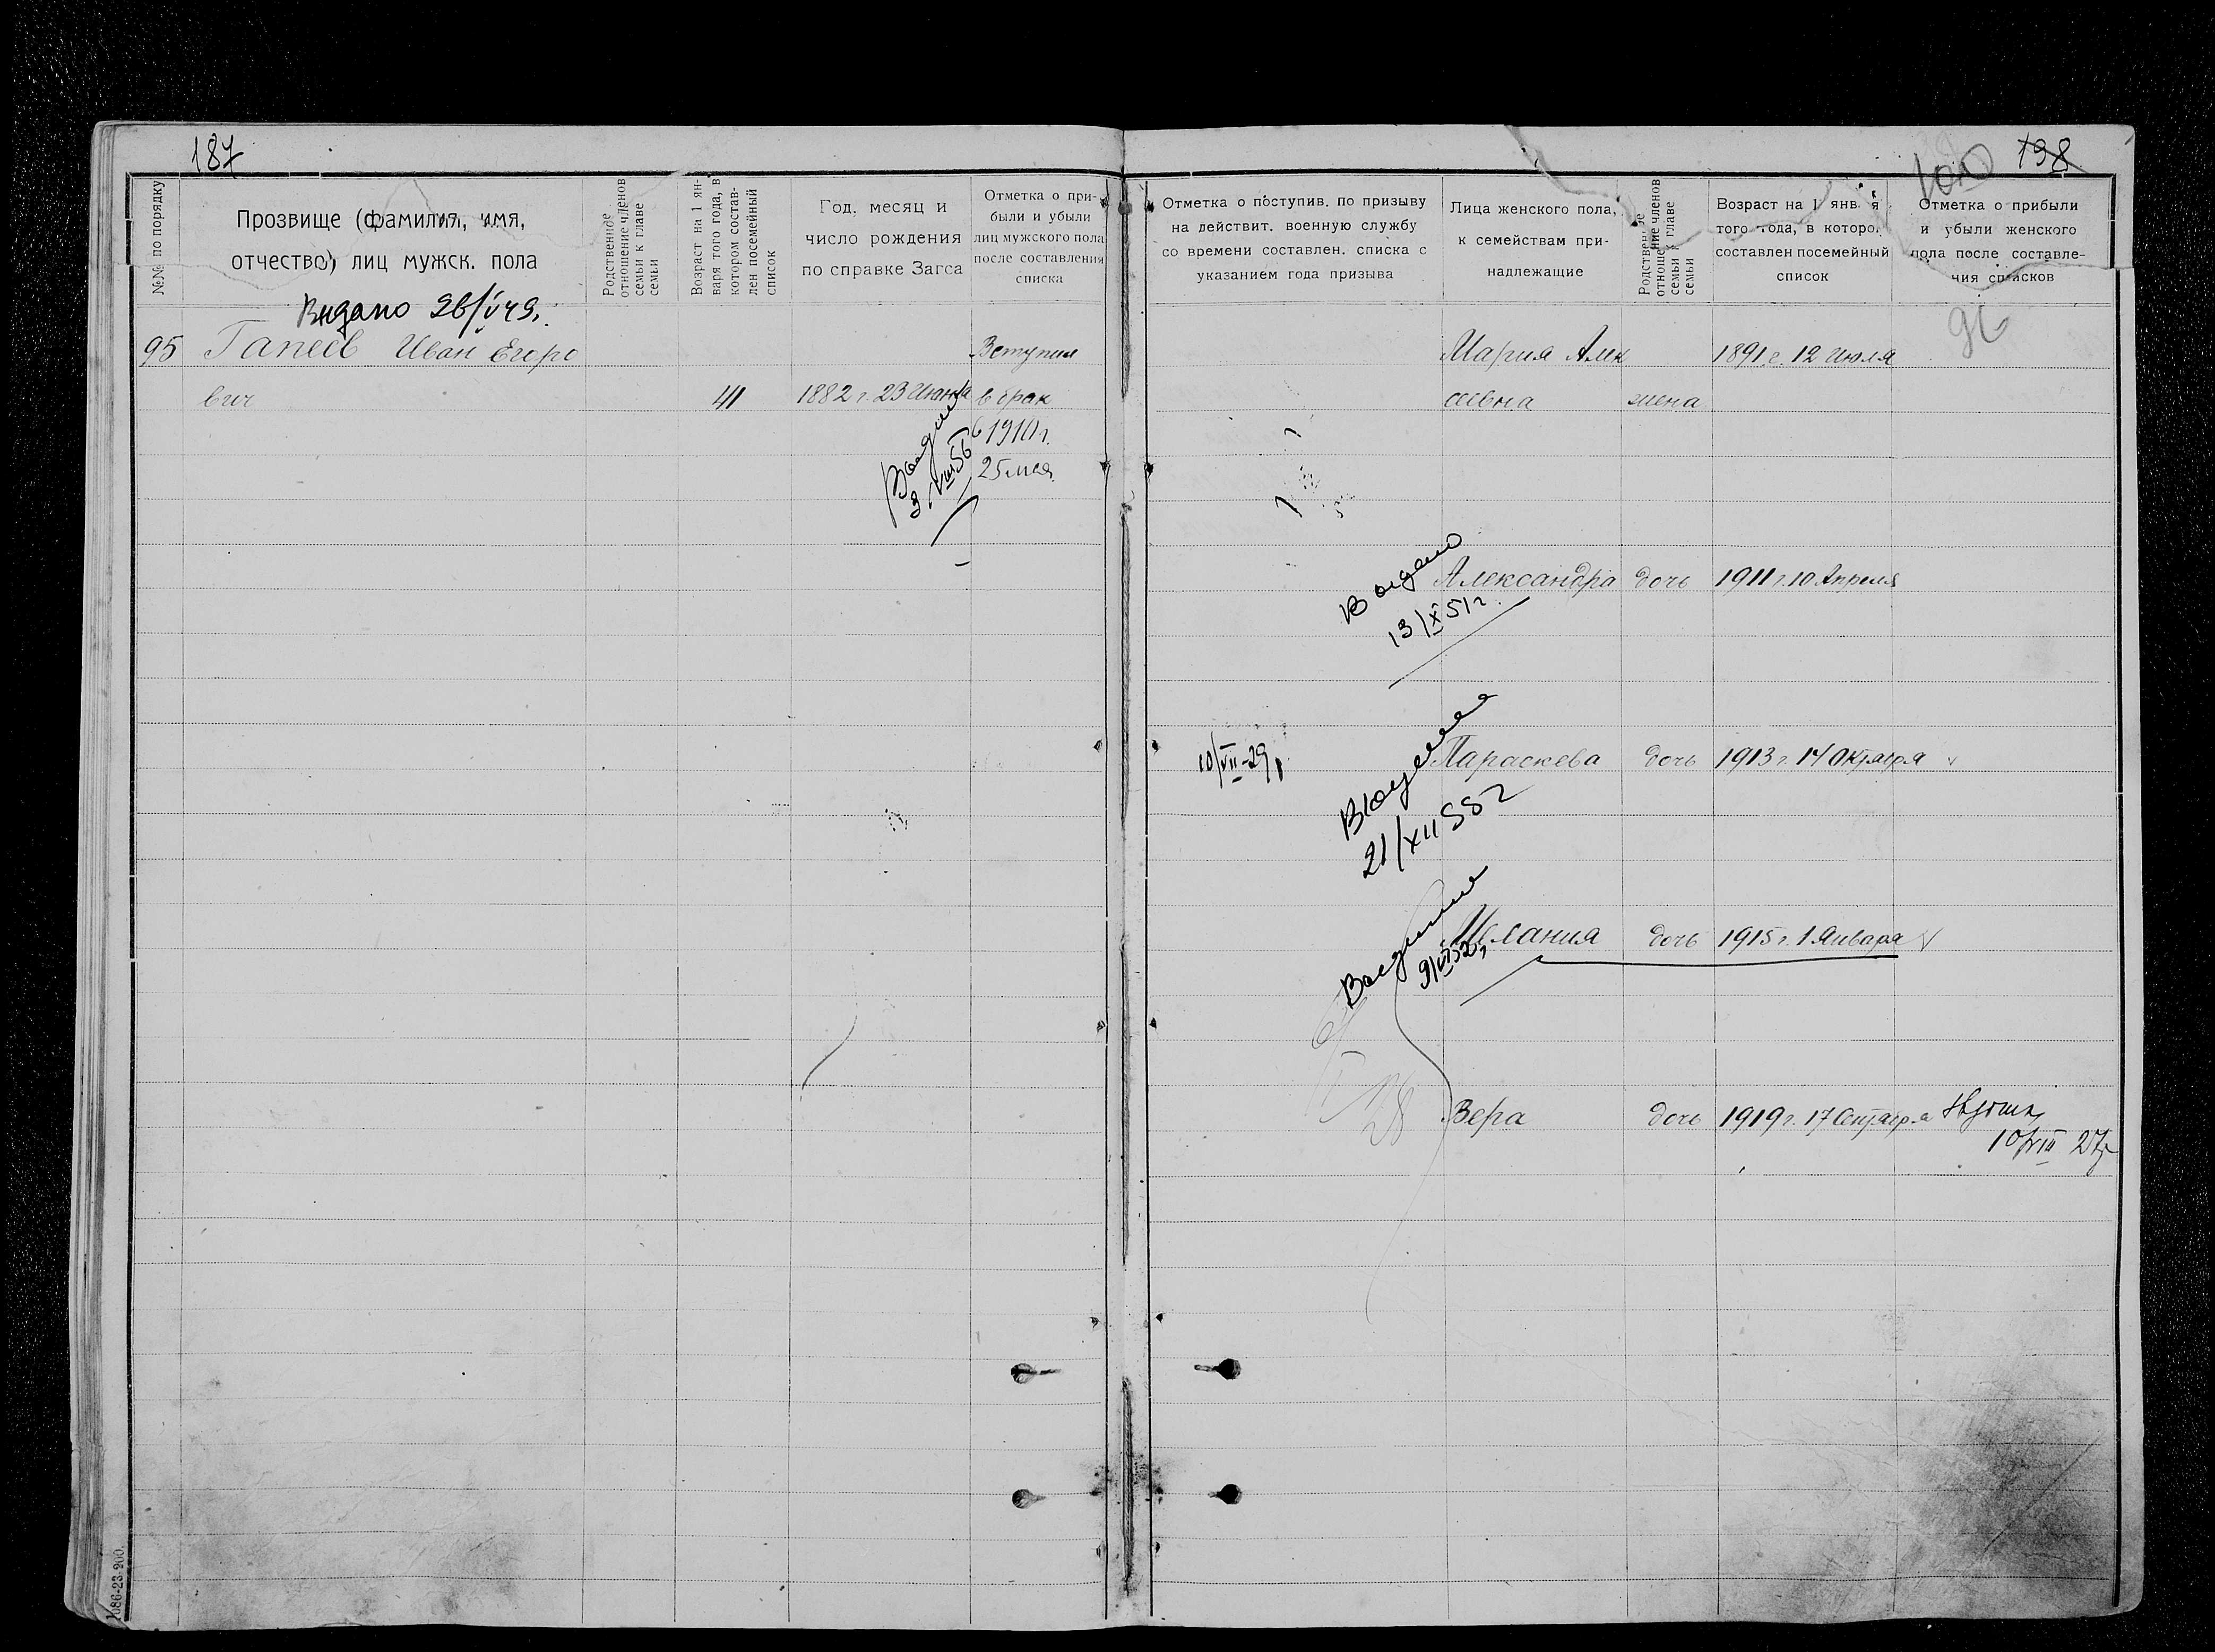 187
198
100
№№ по порядку
Прозвище (фамилия, имя,
отчество) лиц мужск. пола
Родственное
отношение членов
семьи к главе
семьи
Возраст на 1 ян-
варя того года, в
котором состав-
лен посемейный
список
Год, месяц и
число рождения
по справке Загса
Отметка о при-
были и убыли
лиц мужского пола
после составления
списка
Отметка о поступив. по призыву
на действит. военную службу
со времени составлен. списка с
указанием года призыва
Лица женского пола,
к семействам при-
надлежащие
Родственное
отношение членов
семьи к главе
семьи
Возраст на 1 янв я
того года, в которо
составлен посемейный
список
Отметка о прибыли
и убыли женского
пола после составле-
ния списков
Выдано 26/V 49.
96
95 Гапеев Иван Егоро Вступил
вич 41 1882 г. 23 Июня в брак
в 1910 г.
25 мая
3/VIII 56
Мария Алек 1891 г. 12 Июля
сеевна жена
Выдано
13/X 51 г.
Александра дочь 1911 г. 10 Апреля
10/VII-29
21/XII 55 г
Параскева дочь 1913 г. 14 Октября
9/VI 52
Мелания дочь 1915 г. 1 Января
28
Вера дочь 1919 г. 17 Сентября
10/VIII 27 г
1086-23-200.